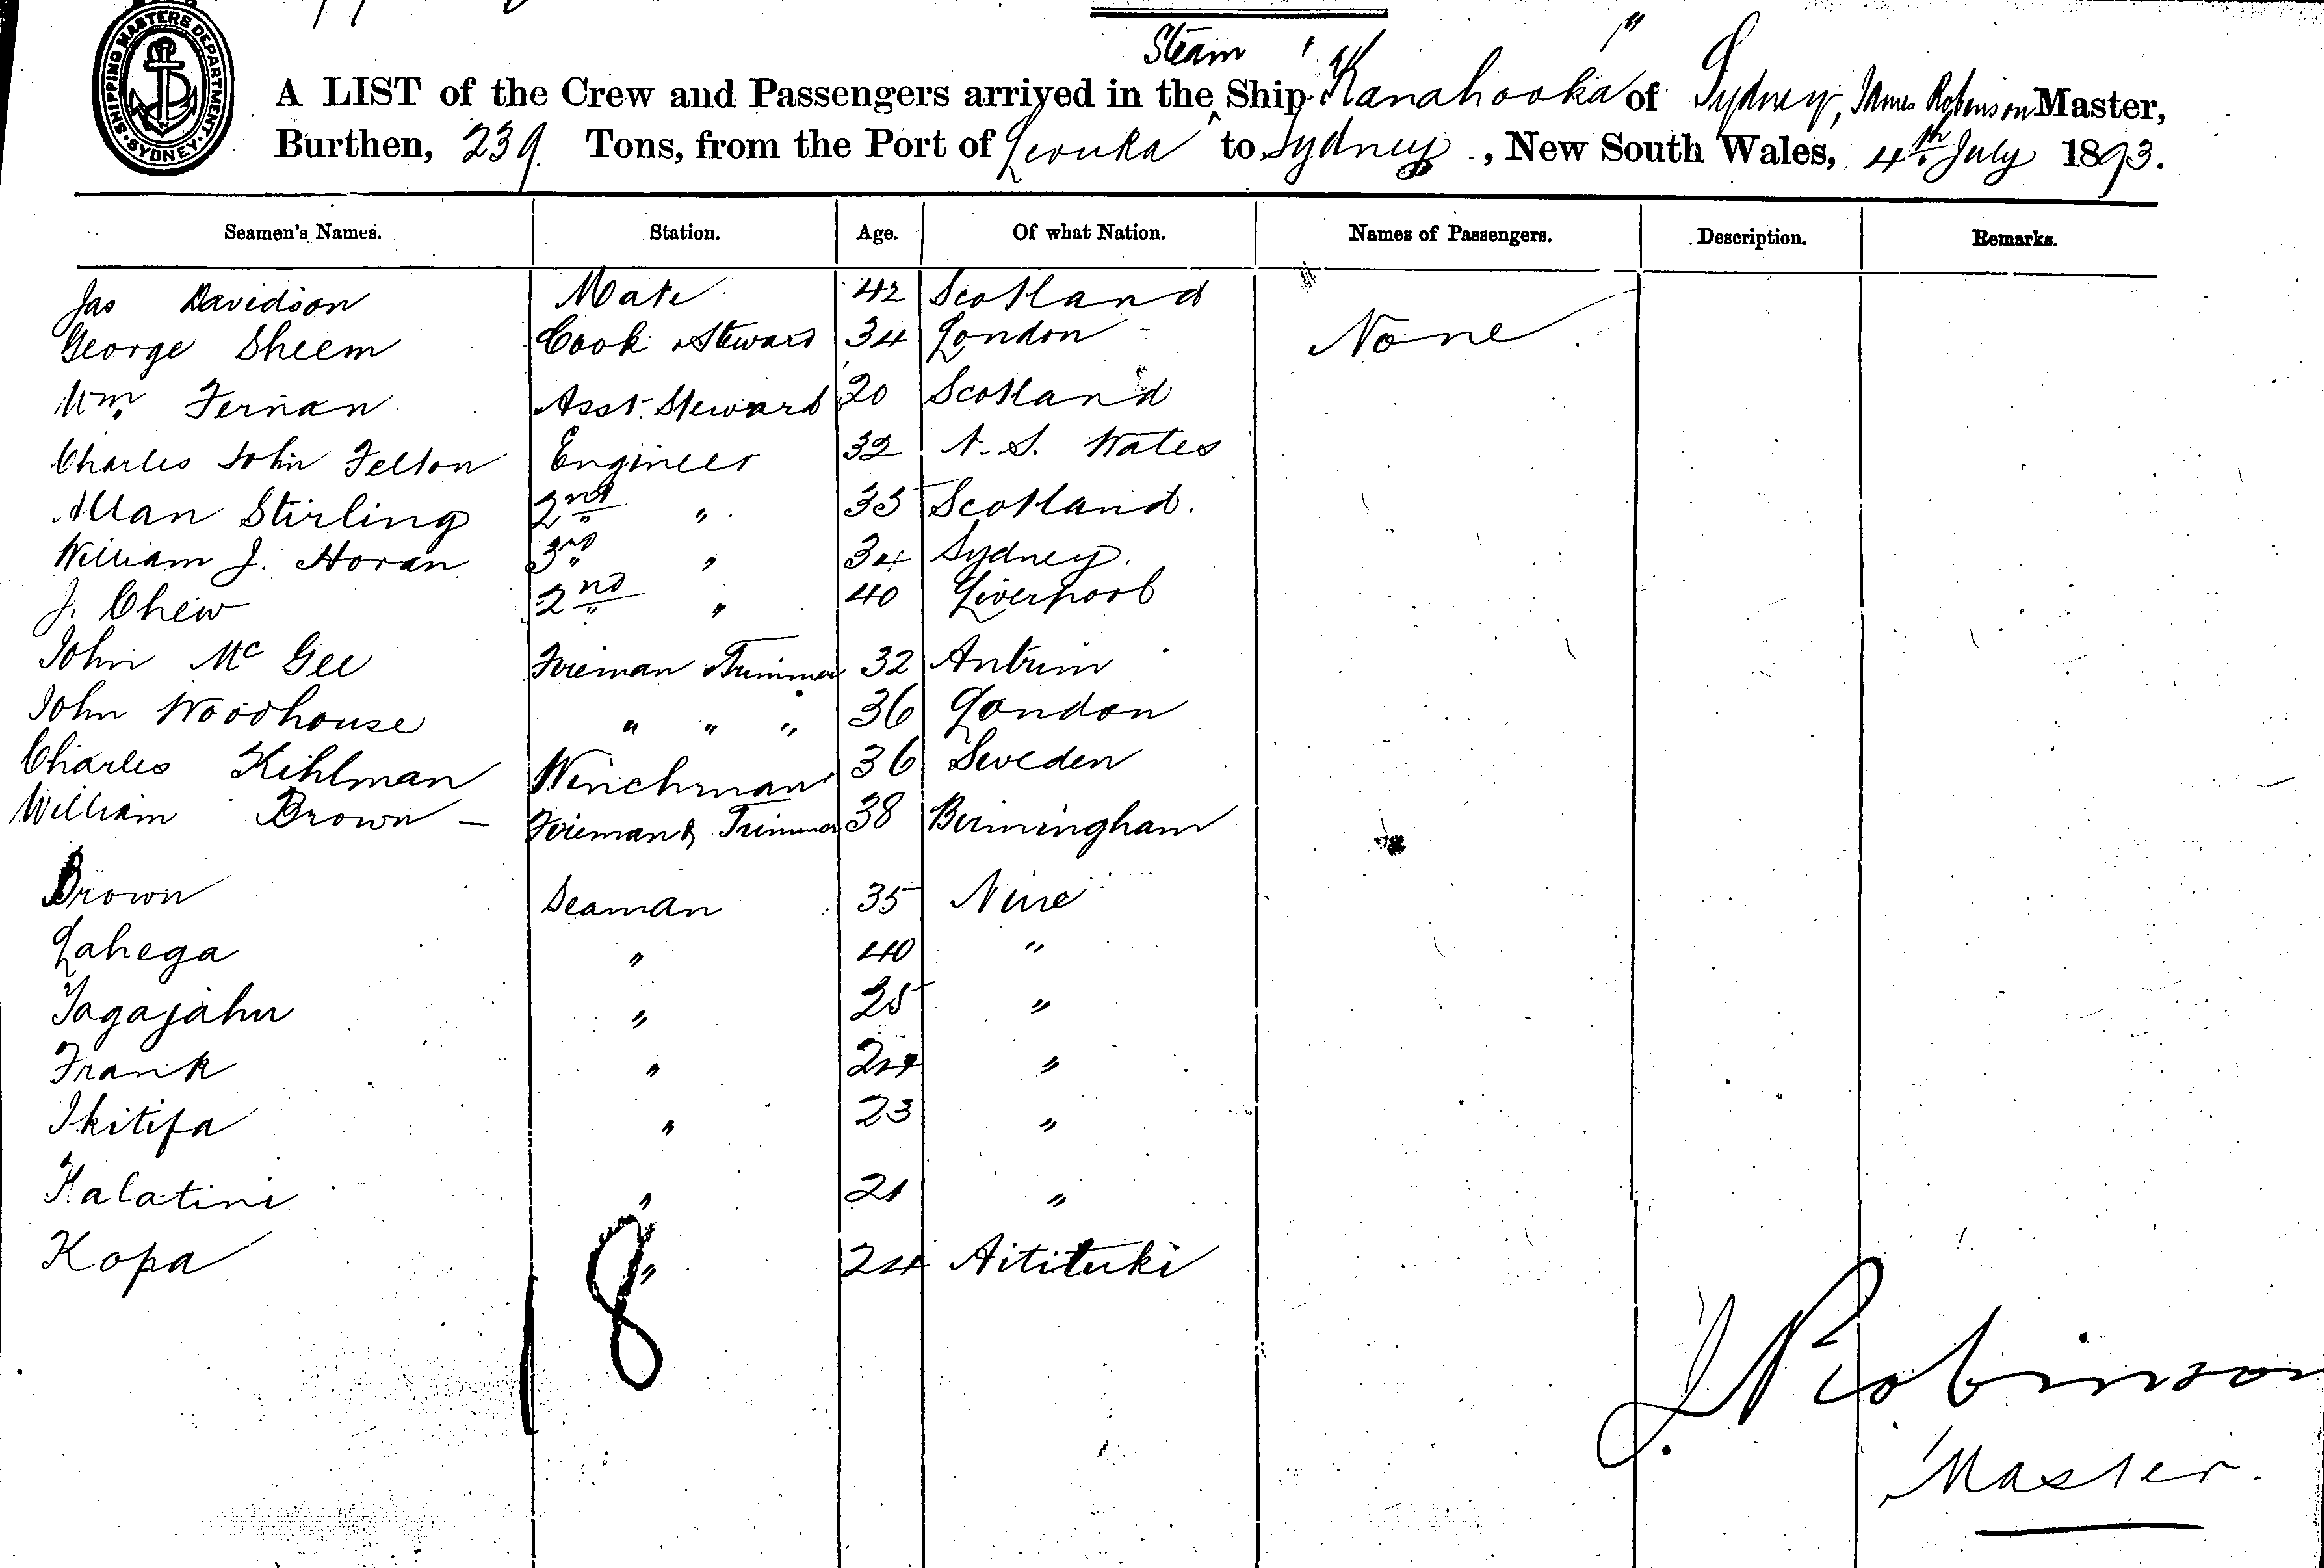 SHIPPING MASTERS DEPARTMENT · SYDNEY ·
Steam
A LIST of the Crew and Passengers arrived in the Ship "Kanahooka" of Sydney, James Robinson Master,
Burthen, 239 Tons, from the Port of Levuka to Sydney, New South Wales, 4th July 1893.
Seamen's Names. Station. Age. Of what Nation. Names of Passengers. Description. Remarks.
Jas Davidson Mate 42 Scotland
George Sheem Cook & Steward 34 London None
Wm. Fernan Asst. Steward 20 Scotland
Charles John Felton Engineer 32 N. S. Wales
Allan Stirling 2nd " 35 Scotland.
William J. Horan 3rd " 34 Sydney.
J. Chew 2nd " 40 Liverpool
John McGee Fireman Trimmer 32 Antrim
John Woodhouse " " " 36 London
Charles Kihlman Winchman 36 Sweden
William Brown — Fireman & Trimmer 38 Birmingham
Brown Seaman 35 Niue
Lahega " 40 "
Tagajahu " 25 "
Frank " 24 "
Ikitifa " 23 "
Halatini " 21 "
Kopa " 24 Aitituki
18
J. Robinson
Master.